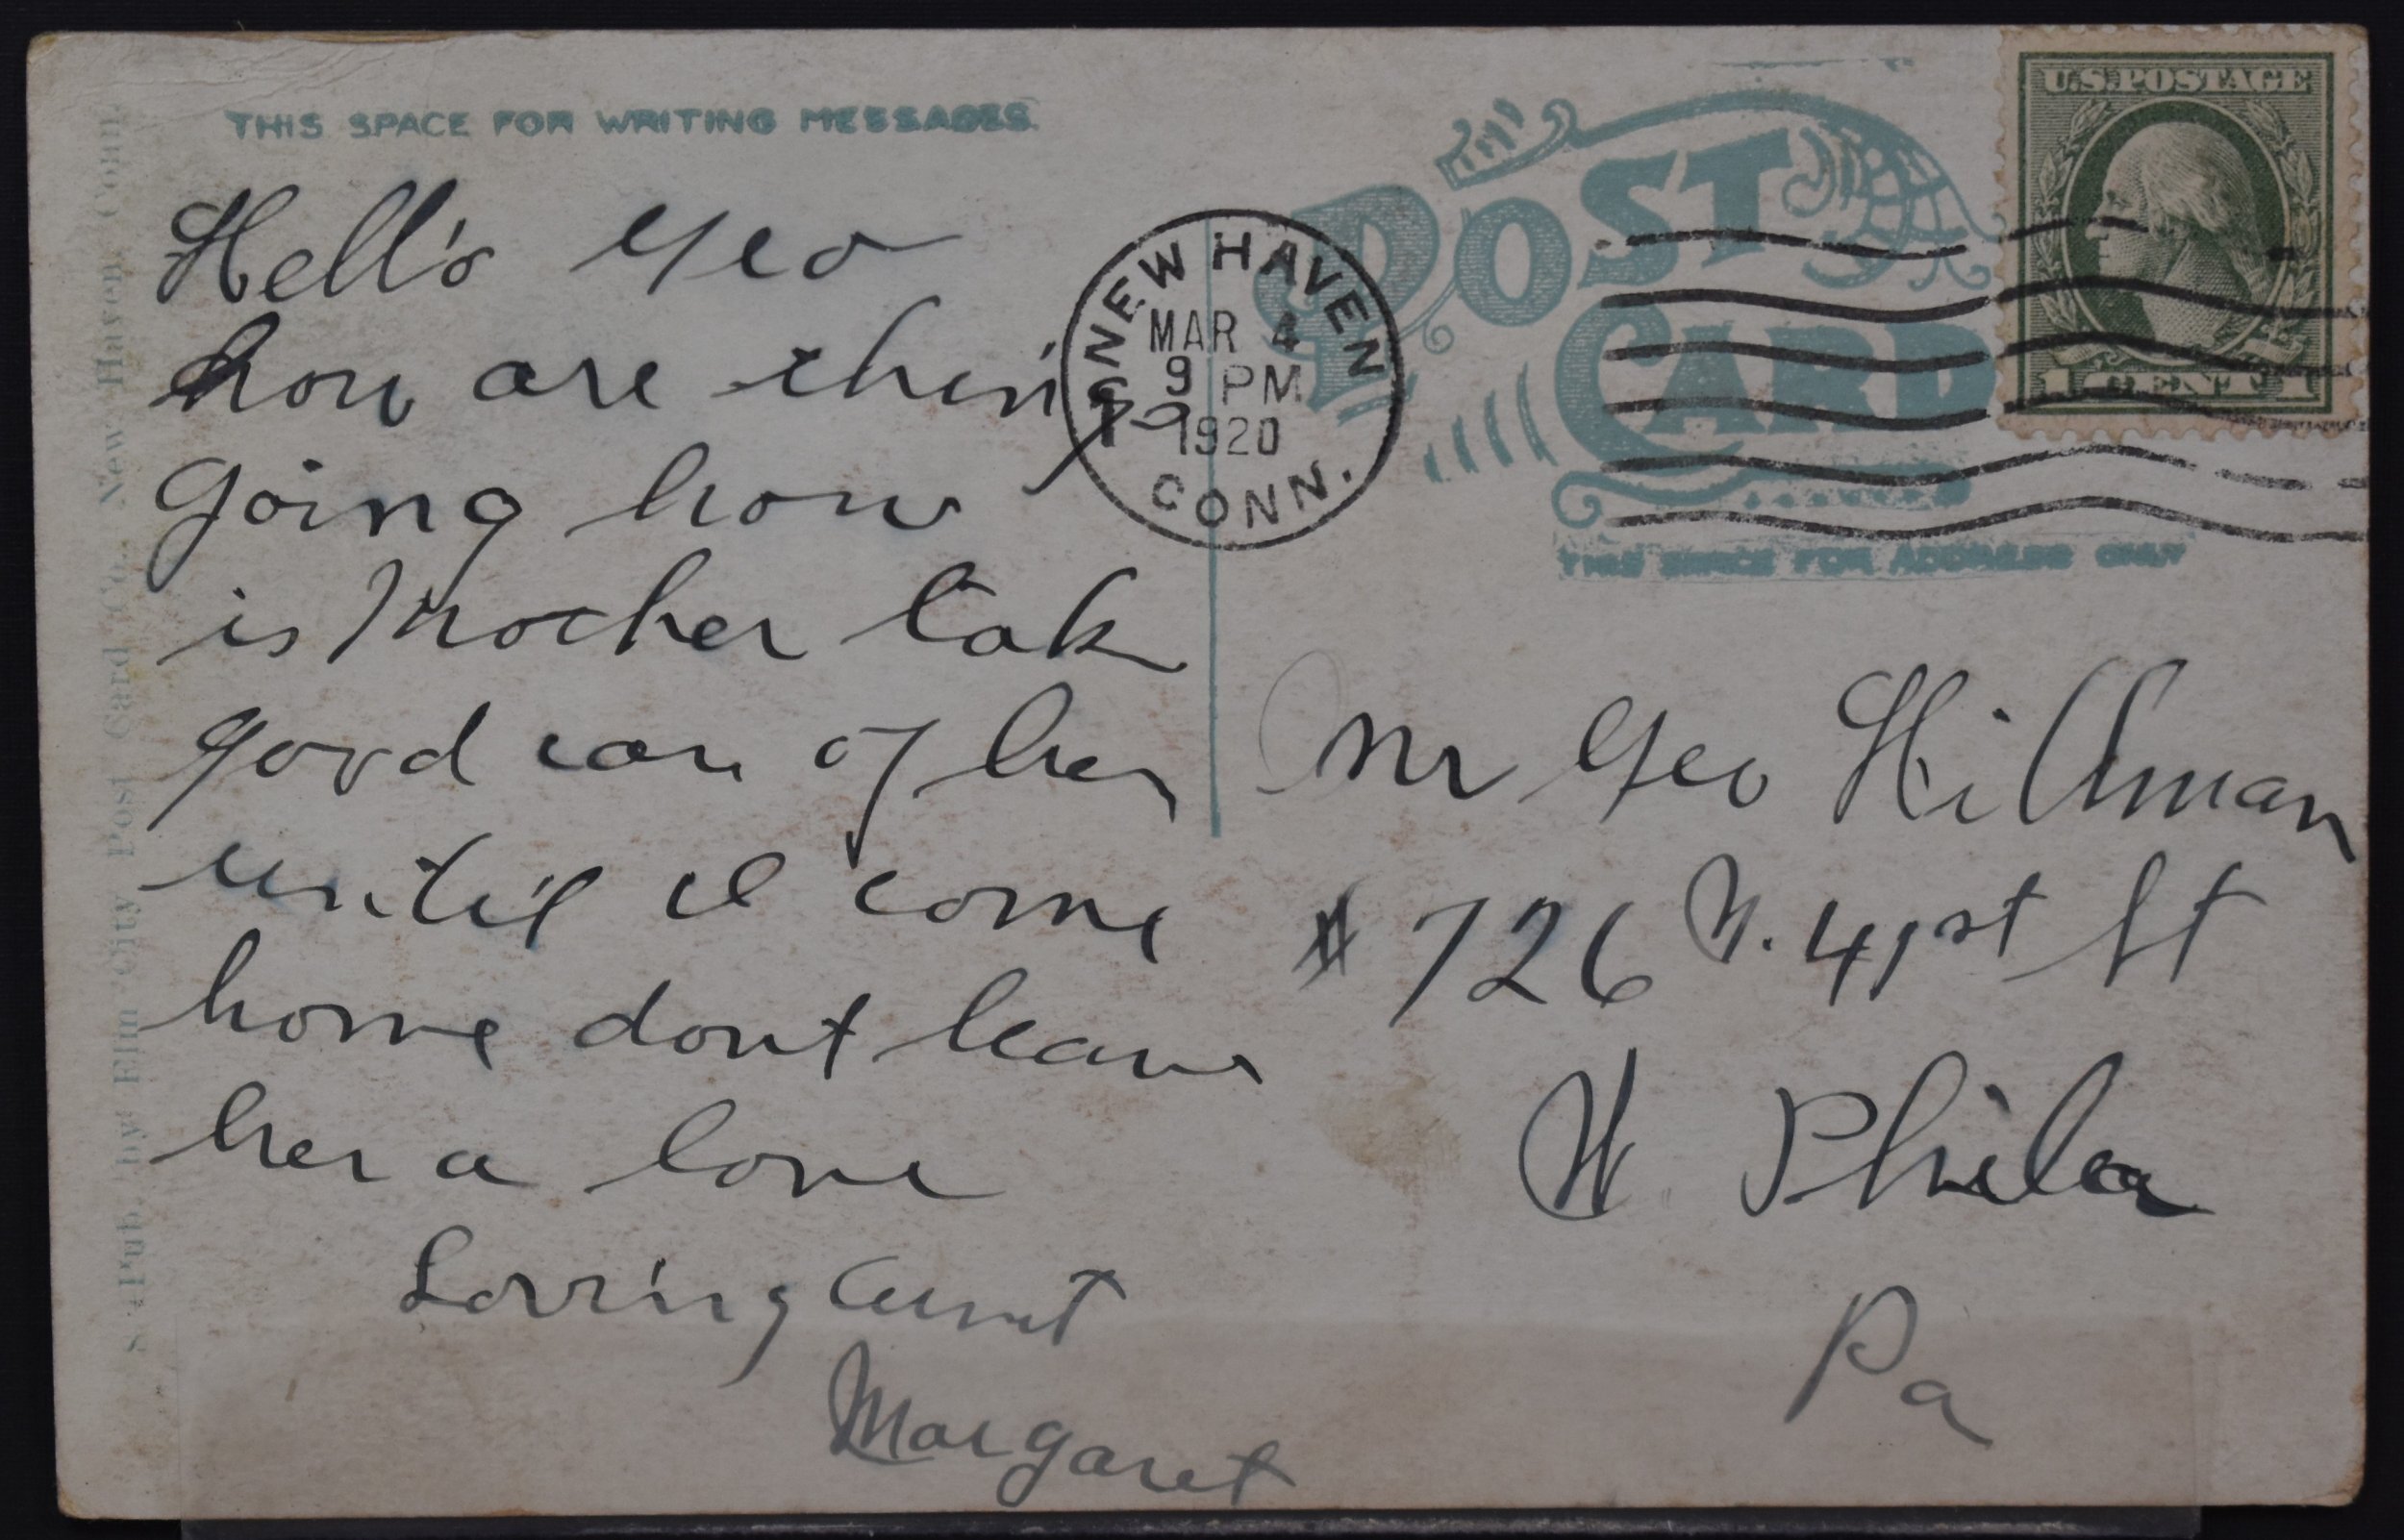 THIS SPACE FOR WRITING MESSAGES.
Hello Geo
how are things
going how
is Mother tak
good care of her
until I come
home dont leave
her a lone
Loving Aunt
Margaret
Pub. by Elm City Post Card Co., New Haven, Conn.
NEW HAVEN
MAR 4
9 PM
1920
CONN.
POST
CARD
U.S. POSTAGE
1 CENT 1
THIS SPACE FOR ADDRESS ONLY
Mr Geo Hillman
# 726 N. 41st St
W. Phila
Pa